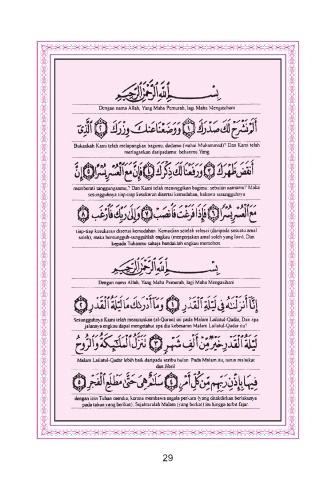 بِسْمِ اللَّهِ الرَّحْمَٰنِ الرَّحِيمِ
Dengan nama Allah, Yang Maha Pemurah, lagi Maha Mengasihani
أَلَمْ نَشْرَحْ لَكَ صَدْرَكَ ١ وَوَضَعْنَا عَنكَ وِزْرَكَ ٢ الَّذِي
Bukankah Kami telah melapangkan bagimu: dadamu (wahai Muhammad)? Dan Kami telah
meringankan daripadamu: bebanmu Yang
أَنقَضَ ظَهْرَكَ ٣ وَرَفَعْنَا لَكَ ذِكْرَكَ ٤ فَإِنَّ مَعَ الْعُسْرِ يُسْرًا ٥ إِنَّ
memberati tanggunganmu,? Dan Kami telah meninggikan bagimu: sebutan namamu? Maka
sesungguhnya tiap-tiap kesukaran disertai kemudahan, bahawa sesungguhnya
مَعَ الْعُسْرِ يُسْرًا ٦ فَإِذَا فَرَغْتَ فَانصَبْ ٧ وَإِلَىٰ رَبِّكَ فَارْغَب ٨
tiap-tiap kesukaran disertai kemudahan. Kemudian apabila engkau selesai (daripada sesuatu amal
soleh), maka bersungguh-sungguhlah engkau (mengerjakan amal soleh yang lain). Dan
kepada Tuhanmu sahaja hendaklah engkau memohon.
بِسْمِ اللَّهِ الرَّحْمَٰنِ الرَّحِيمِ
Dengan nama Allah, Yang Maha Pemurah, lagi Maha Mengasihani
إِنَّا أَنزَلْنَاهُ فِي لَيْلَةِ الْقَدْرِ ١ وَمَا أَدْرَاكَ مَا لَيْلَةُ الْقَدْرِ ٢
Sesungguhnya Kami telah menurunkan (al-Quran) ini pada Malam Lailatul-Qadar, Dan apa
jalannya engkau dapat mengetahui apa dia kebesaran Malam Lailatul-Qadar itu?
لَيْلَةُ الْقَدْرِ خَيْرٌ مِّنْ أَلْفِ شَهْرٍ ٣ تَنَزَّلُ الْمَلَائِكَةُ وَالرُّوحُ
Malam Lailatul-Qadar lebih baik daripada seribu bulan. Pada Malam itu, turun malaikat
dan Jibril
فِيهَا بِإِذْنِ رَبِّهِم مِّن كُلِّ أَمْرٍ ٤ سَلَامٌ هِيَ حَتَّىٰ مَطْلَعِ الْفَجْرِ ٥
dengan izin Tuhan mereka, kerana membawa segala perkara (yang ditakdirkan berlakunya
pada tahun yang berikut). Sejahteralah Malam (yang berkat) itu hingga terbit fajar.
29